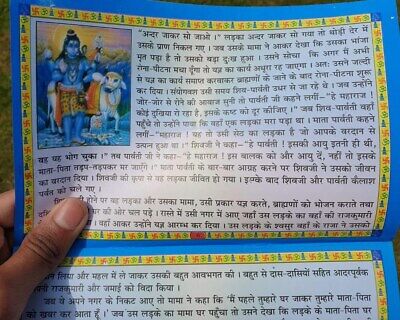 "अन्दर जाकर सो जाओ।" लड़का अन्दर जाकर सो गया तो थोड़ी देर में
उसके प्राण निकल गए। जब उसके मामा ने आकर देखा कि उसका भांजा
मृत पड़ा है तो उसको बड़ा दुःख हुआ। उसने सोचा कि अगर मैं अभी
रोना-पीटना मचा दूँगा तो यज्ञ का कार्य अधूरा रह जाएगा। अतः उसने जल्दी
से यज्ञ का कार्य समाप्त करवाकर ब्राह्मणों के जाने के बाद रोना-पीटना शुरू
कर दिया। संयोगवश उसी समय शिव-पार्वती उधर से जा रहे थे। जब उन्होंने
जोर-जोर से रोने की आवाज सुनी तो पार्वती जी कहने लगीं—"हे महाराज!
कोई दुखिया रो रहा है, इसके कष्ट को दूर कीजिए।" जब शिव-पार्वती वहाँ
पहुँचे तो उन्होंने पाया कि वहाँ एक लड़का मरा पड़ा था। माता पार्वती कहने
लगीं—"महाराज! यह तो उसी सेठ का लड़का है जो आपके वरदान से
उत्पन्न हुआ था।" शिवजी ने कहा—"हे पार्वती! इसकी आयु इतनी ही थी,
वह यह भोग चुका।" तब पार्वती जी ने कहा—"हे महाराज! इस बालक को और आयु दें, नहीं तो इसके
माता-पिता तड़प-तड़पकर मर जाएँगे।" माता पार्वती के बार-बार आग्रह करने पर शिवजी ने उसको जीवन
का वरदान दिया। शिवजी की कृपा से वह लड़का जीवित हो गया। इसके बाद शिवजी और पार्वती कैलाश
पर्वत को चले गए।
होने पर वह लड़का और उसका मामा, उसी प्रकार यज्ञ करते, ब्राह्मणों को भोजन कराते तथा
की ओर चल पड़े। रास्ते में उसी नगर में आए जहाँ उस लड़के का वहाँ की राजकुमारी
वहाँ आकर उन्होंने यज्ञ आरम्भ कर दिया। उस लड़के के श्वसुर वहाँ के राजा ने उसको
लिया और महल में ले जाकर उसकी बहुत आवभगत की। बहुत से दास-दासियों सहित आदरपूर्वक
राजकुमारी और जमाई को विदा किया।
जब ये अपने नगर के निकट आए तो मामा ने कहा कि "मैं पहले तुम्हारे घर जाकर तुम्हारे माता-पिता
को खबर कर आता हूँ। जब उस लड़के का मामा घर पहुँचा तो